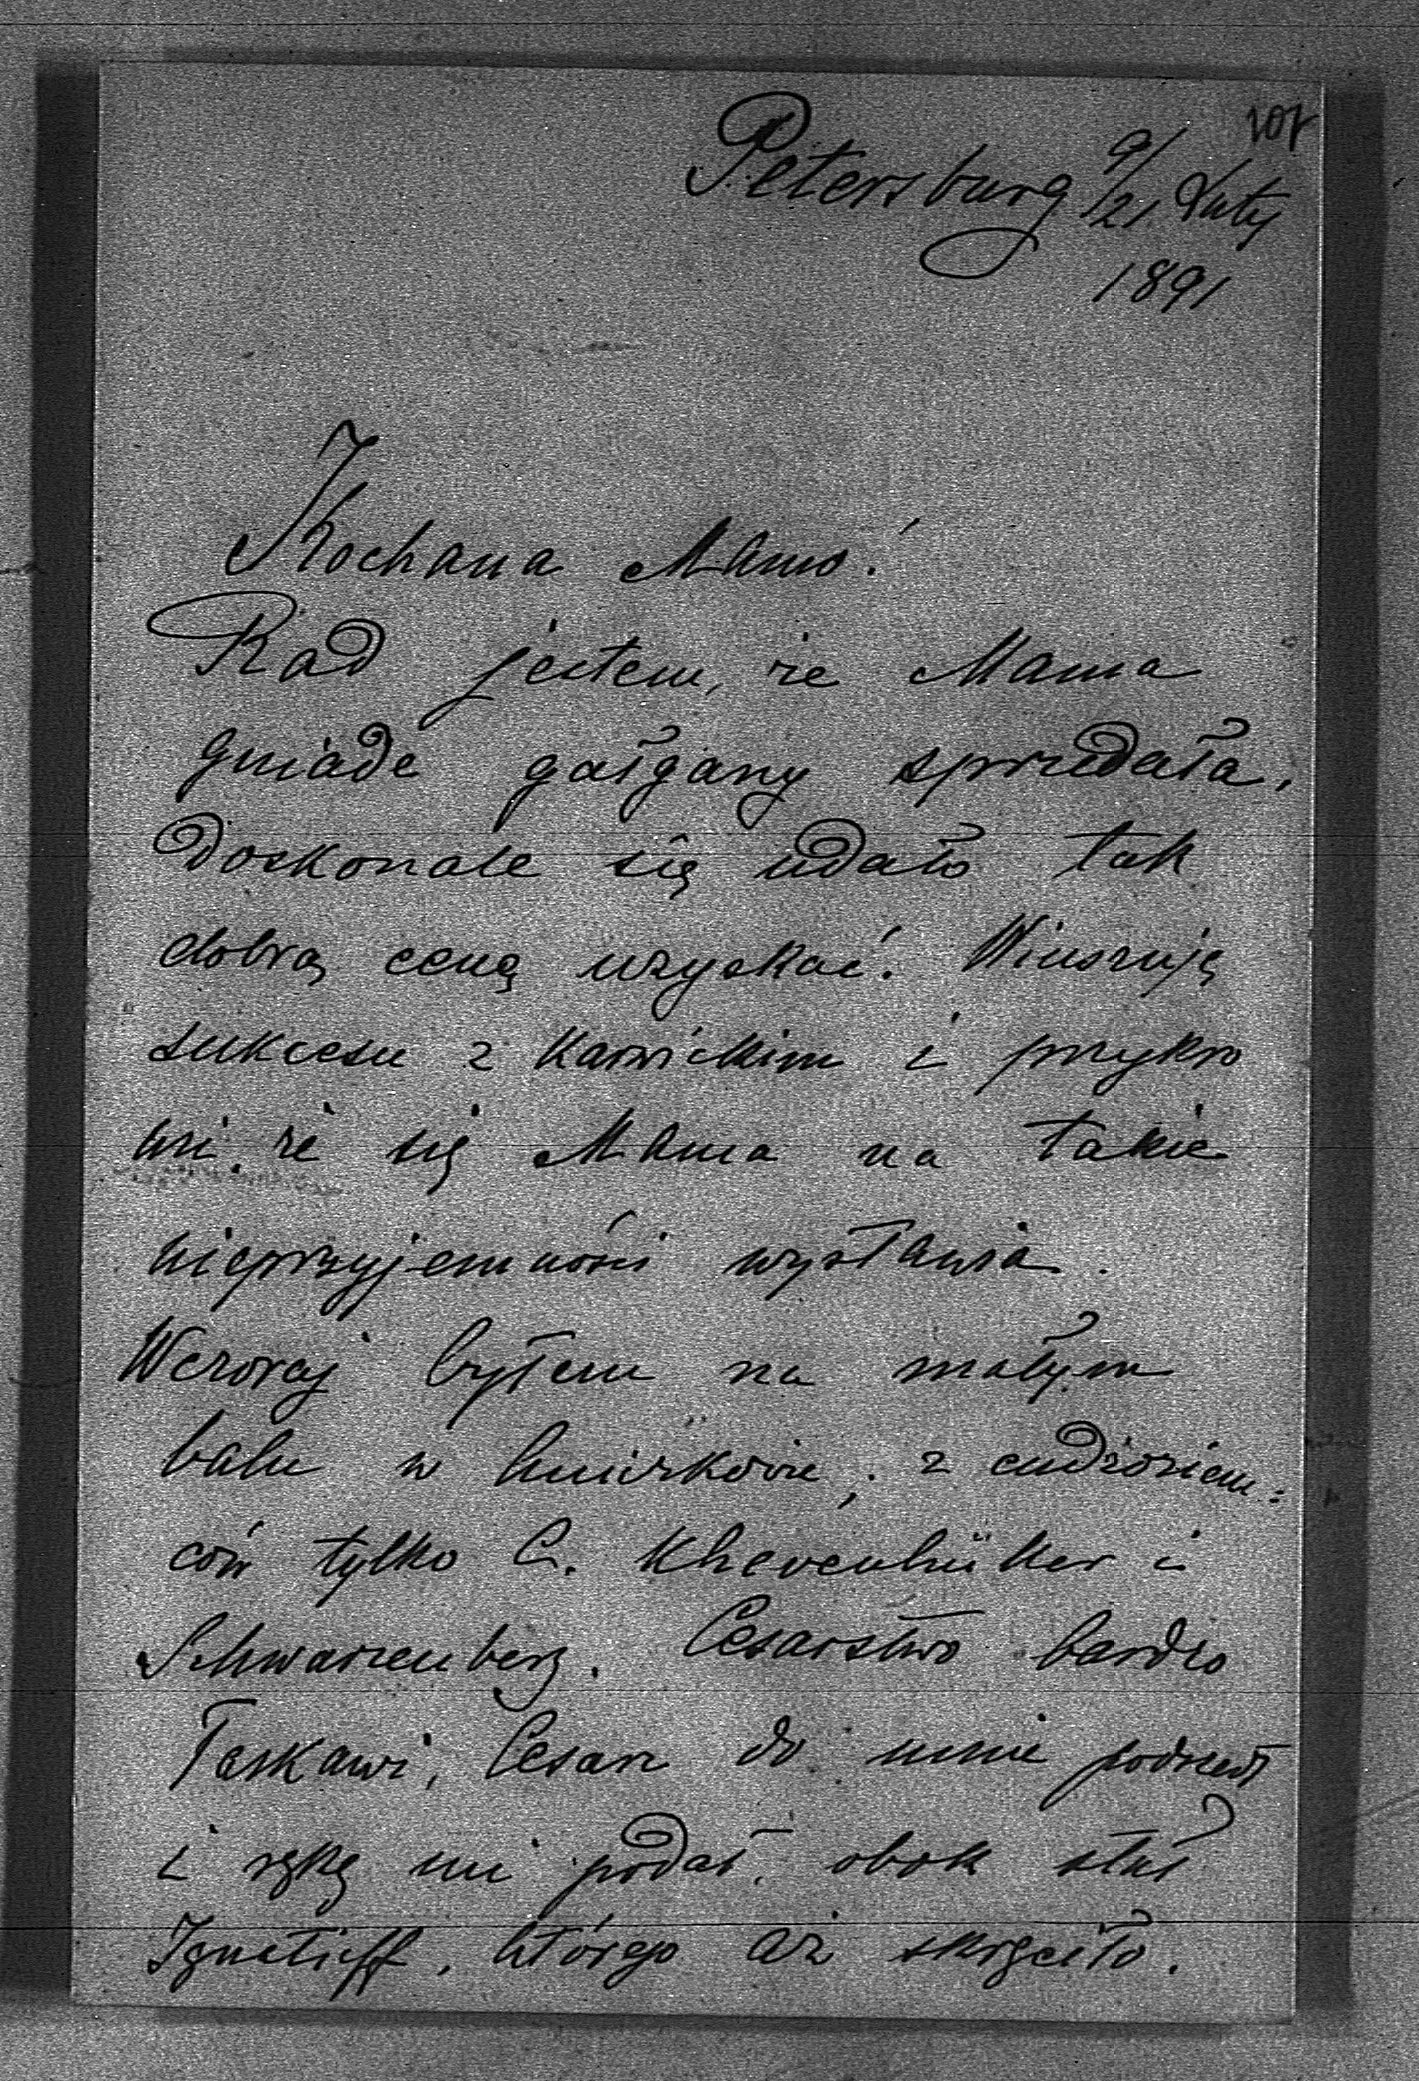 101
Petersburg 9/21 Luty
1891
Kochana Mamo!
Rad jestem, że Mama
gniade gałgany sprzedała,
doskonale się udało tak
dobrą cenę uzyskać. Winszuję
sukcesu z Karwickim i przykro
mi że się Mama na takie
nieprzyjemności wystawia.
Wczoraj byłem na małym
balu w ; z cudzoziem=
ców tylko C. Khevenhüller i
Schwarzenberg. Cesarstwo bardzo
łaskawi, Cesarz do mnie podszedł
i rękę mi podał, obok stał
Ignatieff, którego aż skręciło.